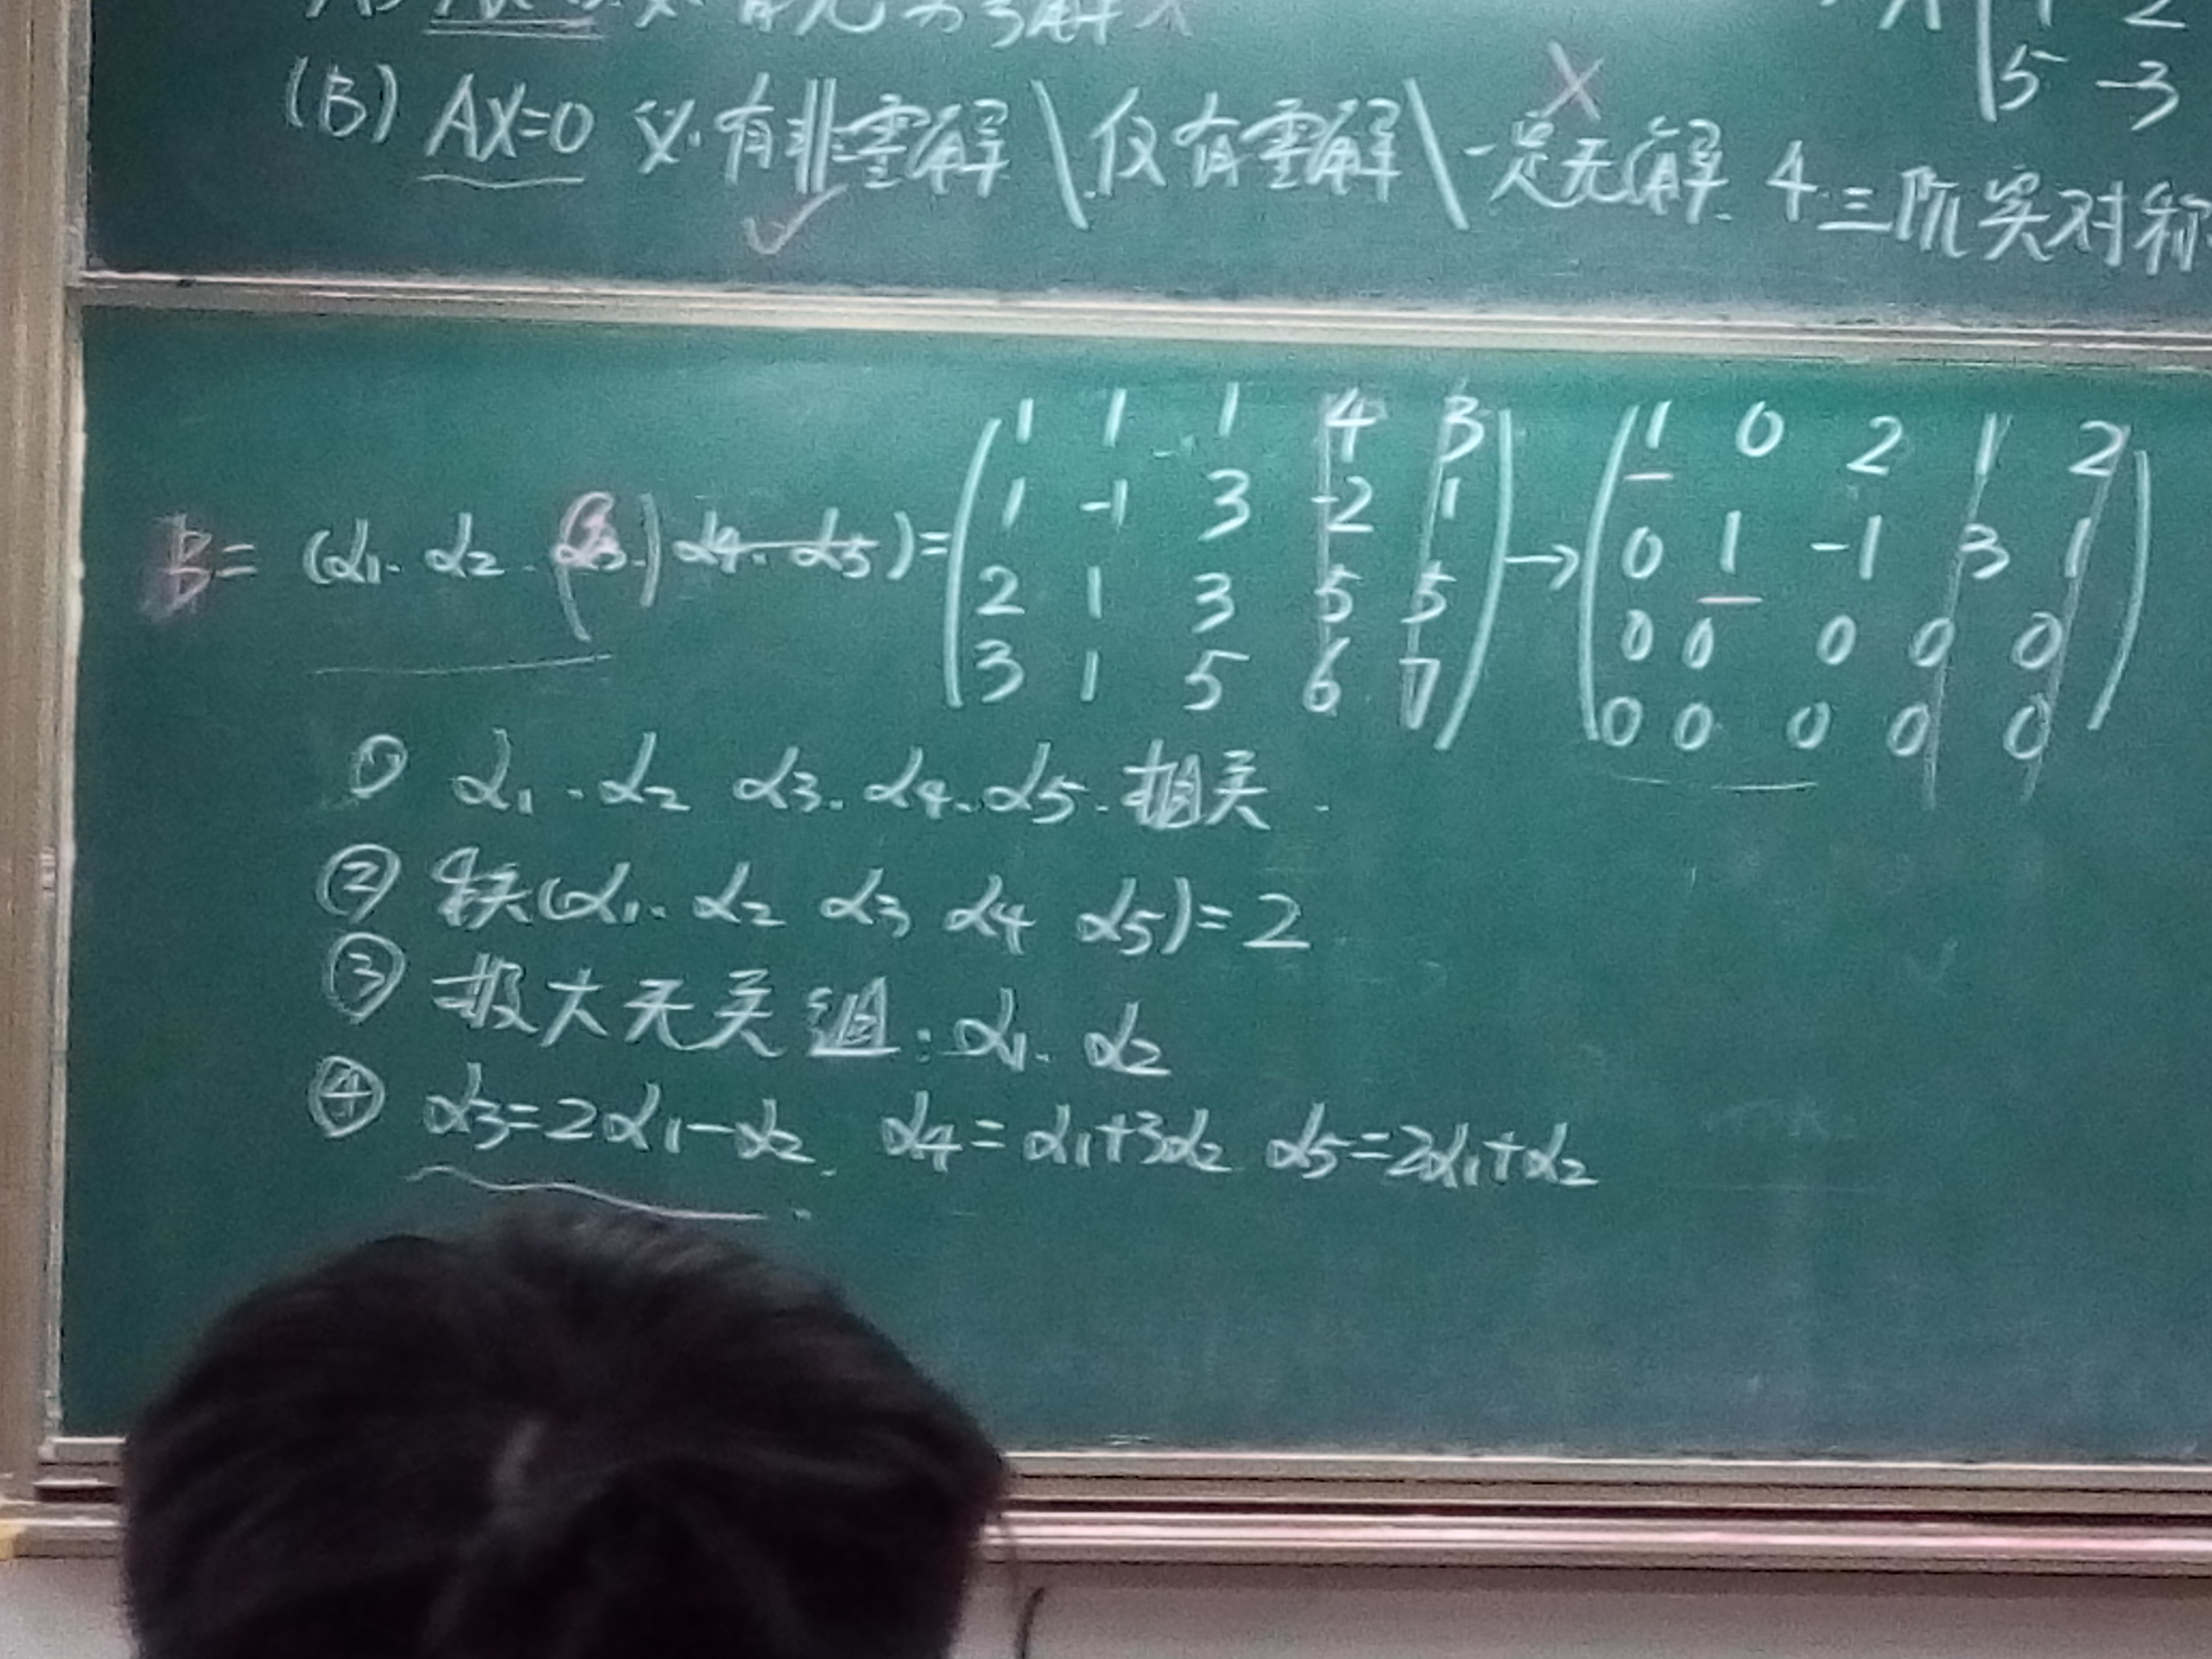 (B) AX=0 必有非零解 \ 仅有零解 \ 一定无解 ×
✓
5 -3
4. 三阶实对称
B = (α1. α2. (α3.) α4. α5) = ( 1 1 1 4 3 → ( 1 0 2 1 2
1 -1 3 -2 1 0 1 -1 3 1
2 1 3 5 5 0 0 0 0 0
3 1 5 6 7 ) 0 0 0 0 0 )
① α1. α2 α3. α4. α5. 相关.
② 秩(α1. α2 α3 α4 α5) = 2
③ 极大无关组: α1. α2
④ α3=2α1-α2. α4=α1+3α2 α5=2α1+α2